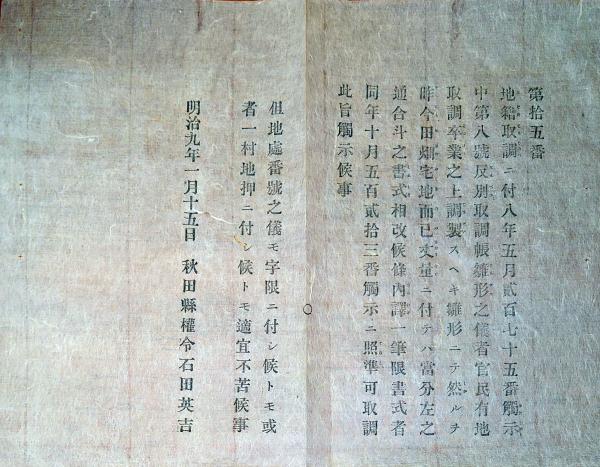 第拾五番
地籍取調ニ付八年五月貳百七十五番觸示
中第八號反別取調帳雛形之儀者官民有地
取調卒業之上調製スヘキ雛形ニテ然ルヲ
昨今田畑宅地而已丈量ニ付テハ當分左之
通合斗之書式相改候條內譯一筆限書式者
同年十月五百貳拾三番觸示ニ照準可取調
此旨觸示候事
但地處番號之儀モ字限ニ付シ候トモ或
者一村地押ニ付シ候トモ適宜不苦候事
明治九年一月十五日 秋田縣權令石田英吉